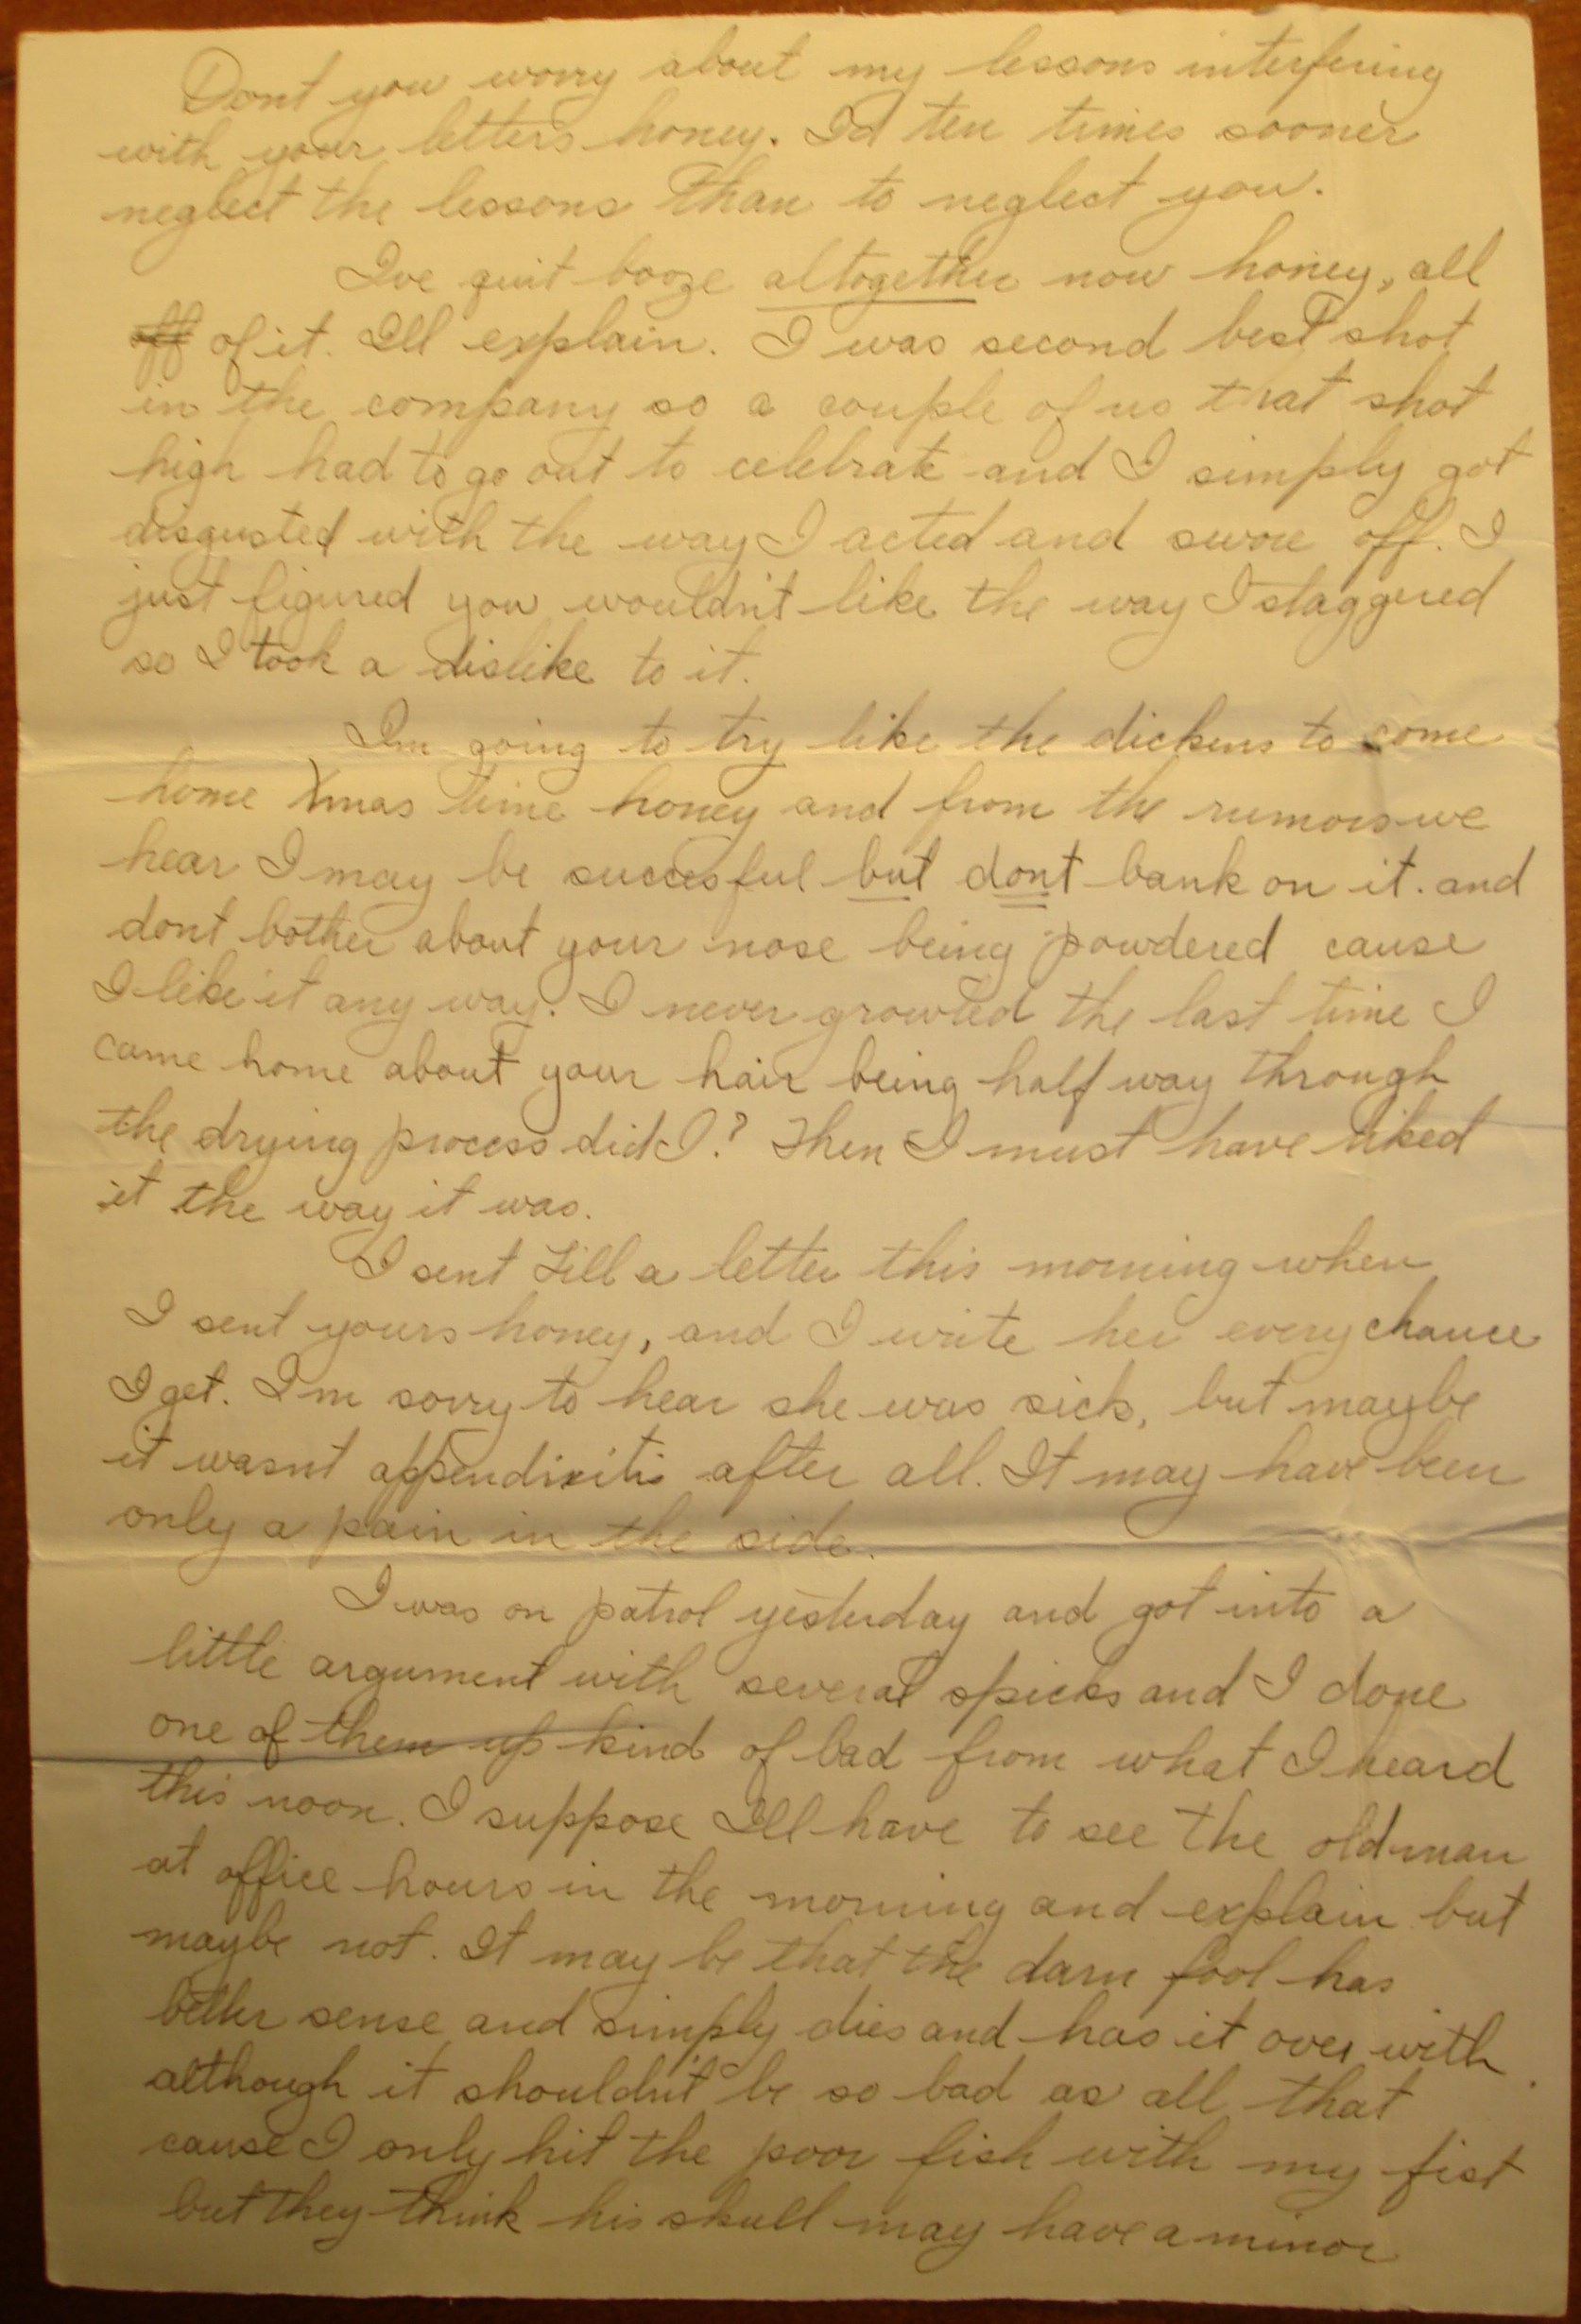 Dont you worry about my lessons interfering
with your letters honey. Id ten times sooner
neglect the lessons than to neglect you.
Ive quit booze altogether now honey, all
off of it. Ill explain. I was second best shot
in the company so a couple of us that shot
high had to go out to celebrate and I simply got
disgusted with the way I acted and swore off. I
just figured you wouldn't like the way I staggered
so I took a dislike to it.
Im going to try like the dickens to come
home Xmas time honey and from the rumors we
hear I may be succesful but dont bank on it. and
dont bother about your nose being powdered cause
I like it any way. I never growled the last time I
came home about your hair being half way through
the drying process did I? Then I must have liked
it the way it was.
I sent Lill a letter this morning when
I sent yours honey, and I write her every chance
I get. I'm sorry to hear she was sick, but maybe
it wasnt appendixitis after all. It may have been
only a pain in the side.
I was on patrol yesterday and got into a
little argument with several spicks and I done
one of them up kind of bad from what I heard
this noon. I suppose Ill have to see the old man
at office hours in the morning and explain but
maybe not. It may be that the darn fool has
better sense and simply dies and has it over with
although it shouldn't be so bad as all that
cause I only hit the poor fish with my fist
but they think his skull may have a minor